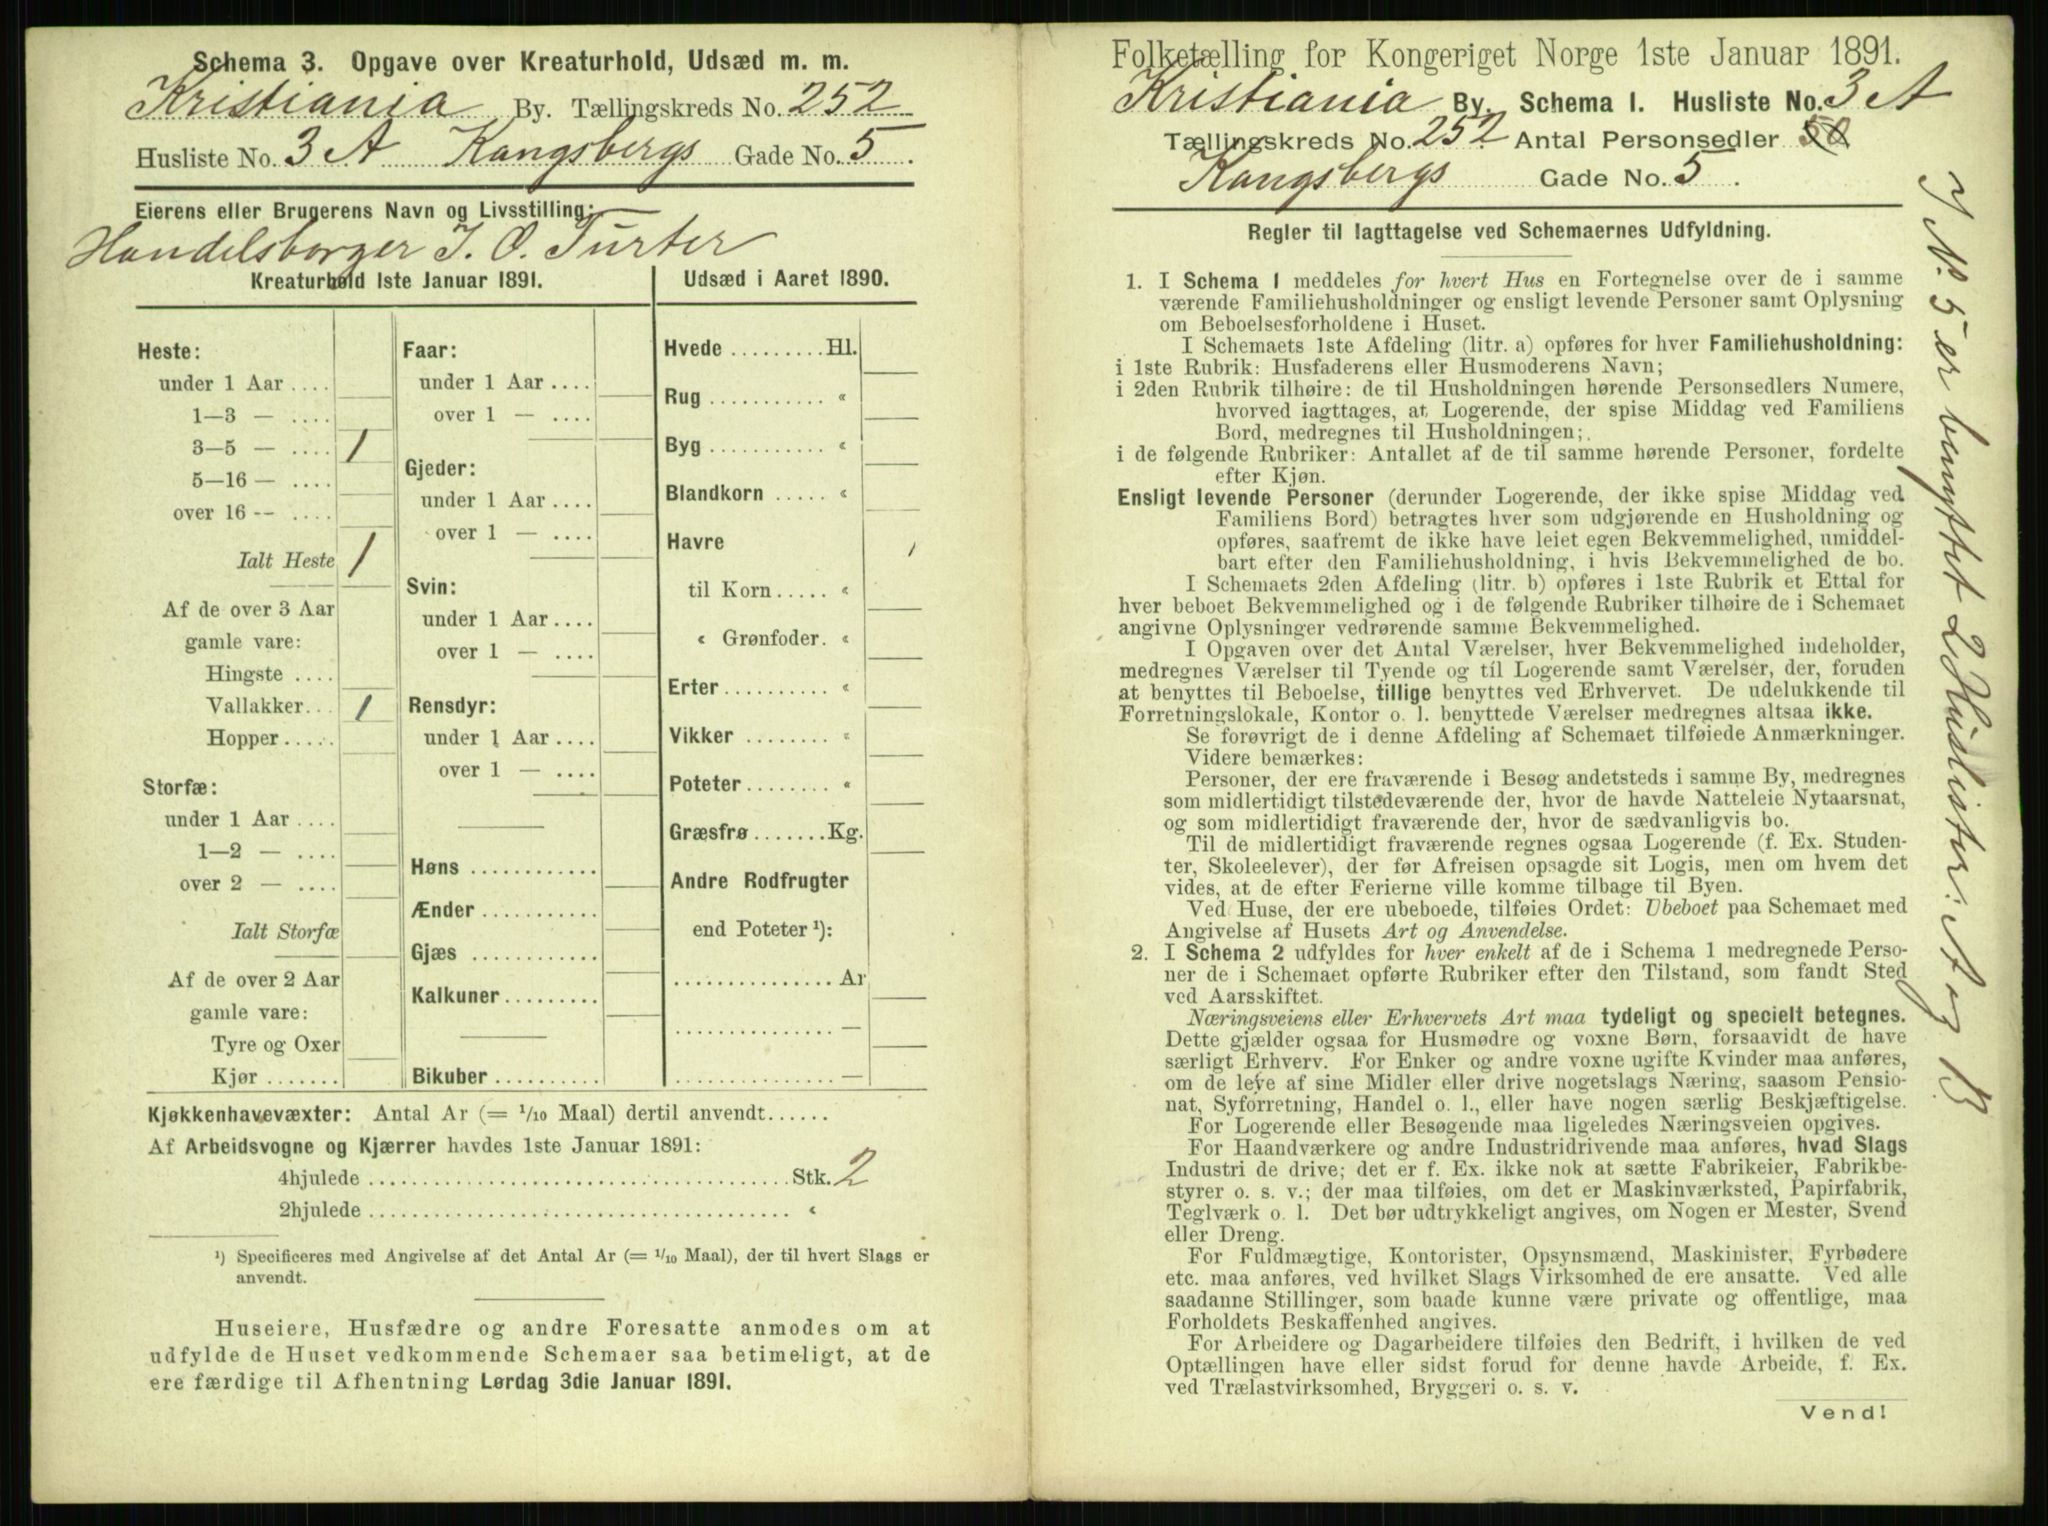 Schema 3. Opgave over Kreaturhold, Udsæd m. m.
Kristiania By. Tællingskreds No. 252
Husliste No. 3 A Kongsbergs Gade No. 5.
Eierens eller Brugerens Navn og Livsstilling:
Handelsborger J. O. Turter
Kreaturhold 1ste Januar 1891.
Heste:
under 1 Aar ....
1—3 — ....
3—5 — .... 1
5—16 — ....
over 16 -- ....
Ialt Heste 1
Af de over 3 Aar
gamle vare:
Hingste ....
Vallakker... 1
Hopper.....
Storfæ:
under 1 Aar ....
1—2 — ....
over 2 — ....
Ialt Storfæ
Af de over 2 Aar
gamle vare:
Tyre og Oxer
Kjør .......
Faar:
under 1 Aar ....
over 1 — ....
Gjeder:
under 1 Aar ....
over 1 — ....
Svin:
under 1 Aar ....
over 1 — ....
Rensdyr:
under 1 Aar ....
over 1 — ....
Høns ............
Ænder ...........
Gjæs ............
Kalkuner .........
Bikuber ..........
Udsæd i Aaret 1890.
Hvede ......... Hl.
Rug ........... «
Byg ........... «
Blandkorn ..... «
Havre
til Korn ..... «
« Grønfoder. «
Erter .......... «
Vikker ........ «
Poteter ........ «
Græsfrø ....... Kg.
Andre Rodfrugter
end Poteter ¹):
............... Ar
............... —
............... —
Kjøkkenhavevæxter: Antal Ar (= 1/10 Maal) dertil anvendt......
Af Arbeidsvogne og Kjærrer havdes 1ste Januar 1891:
4hjulede ........................................ Stk. 2
2hjulede ........................................ «
¹) Specificeres med Angivelse af det Antal Ar (= 1/10 Maal), der til hvert Slags er
anvendt.
Huseiere, Husfædre og andre Foresatte anmodes om at
udfylde de Huset vedkommende Schemaer saa betimeligt, at de
ere færdige til Afhentning Lørdag 3die Januar 1891.
Folketælling for Kongeriget Norge 1ste Januar 1891.
Kristiania By. Schema 1. Husliste No. 3 A
Tællingskreds No. 252 Antal Personsedler 50
Kongsbergs Gade No. 5.
Regler til Iagttagelse ved Schemaernes Udfyldning.
1. I Schema 1 meddeles for hvert Hus en Fortegnelse over de i samme
værende Familiehusholdninger og ensligt levende Personer samt Oplysning
om Beboelsesforholdene i Huset.
I Schemaets 1ste Afdeling (litr. a) opføres for hver Familiehusholdning:
i 1ste Rubrik: Husfaderens eller Husmoderens Navn;
i 2den Rubrik tilhøire: de til Husholdningen hørende Personsedlers Numere,
hvorved iagttages, at Logerende, der spise Middag ved Familiens
Bord, medregnes til Husholdningen;
i de følgende Rubriker: Antallet af de til samme hørende Personer, fordelte
efter Kjøn.
Ensligt levende Personer (derunder Logerende, der ikke spise Middag ved
Familiens Bord) betragtes hver som udgjørende en Husholdning og
opføres, saafremt de ikke have leiet egen Bekvemmelighed, umiddel-
bart efter den Familiehusholdning, i hvis Bekvemmelighed de bo.
I Schemaets 2den Afdeling (litr. b) opføres i 1ste Rubrik et Ettal for
hver beboet Bekvemmelighed og i de følgende Rubriker tilhøire de i Schemaet
angivne Oplysninger vedrørende samme Bekvemmelighed.
I Opgaven over det Antal Værelser, hver Bekvemmelighed indeholder,
medregnes Værelser til Tyende og til Logerende samt Værelser, der, foruden
at benyttes til Beboelse, tillige benyttes ved Erhvervet. De udelukkende til
Forretningslokale, Kontor o. l. benyttede Værelser medregnes altsaa ikke.
Se forøvrigt de i denne Afdeling af Schemaet tilføiede Anmærkninger.
Videre bemærkes:
Personer, der ere fraværende i Besøg andetsteds i samme By, medregnes
som midlertidigt tilstedeværende der, hvor de havde Natteleie Nytaarsnat,
og som midlertidigt fraværende der, hvor de sædvanligvis bo.
Til de midlertidigt fraværende regnes ogsaa Logerende (f. Ex. Studen-
ter, Skoleelever), der før Afreisen opsagde sit Logis, men om hvem det
vides, at de efter Ferierne ville komme tilbage til Byen.
Ved Huse, der ere ubeboede, tilføies Ordet: Ubeboet paa Schemaet med
Angivelse af Husets Art og Anvendelse.
2. I Schema 2 udfyldes for hver enkelt af de i Schema 1 medregnede Perso-
ner de i Schemaet opførte Rubriker efter den Tilstand, som fandt Sted
ved Aarsskiftet.
Næringsveiens eller Erhvervets Art maa tydeligt og specielt betegnes.
Dette gjælder ogsaa for Husmødre og voxne Børn, forsaavidt de have
særligt Erhverv. For Enker og andre voxne ugifte Kvinder maa anføres,
om de leve af sine Midler eller drive nogetslags Næring, saasom Pensio-
nat, Syforretning, Handel o. l., eller have nogen særlig Beskjæftigelse.
For Logerende eller Besøgende maa ligeledes Næringsveien opgives.
For Haandværkere og andre Industridrivende maa anføres, hvad Slags
Industri de drive; det er f. Ex. ikke nok at sætte Fabrikeier, Fabrikbe-
styrer o. s. v.; der maa tilføies, om det er Maskinværksted, Papirfabrik,
Teglværk o. l. Det bør udtrykkeligt angives, om Nogen er Mester, Svend
eller Dreng.
For Fuldmægtige, Kontorister, Opsynsmænd, Maskinister, Fyrbødere
etc. maa anføres, ved hvilket Slags Virksomhed de ere ansatte. Ved alle
saadanne Stillinger, som baade kunne være private og offentlige, maa
Forholdets Beskaffenhed angives.
For Arbeidere og Dagarbeidere tilføies den Bedrift, i hvilken de ved
Optællingen have eller sidst forud for denne havde Arbeide, f. Ex.
ved Trælastvirksomhed, Bryggeri o. s. v.
Vend!
I N. 5 er benyttet 2 Huslister: A og B